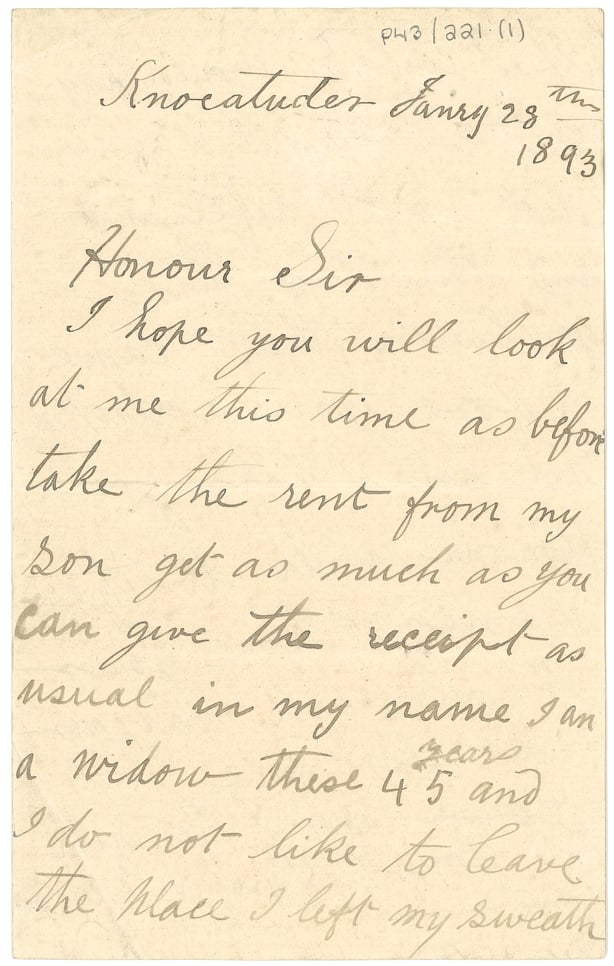 P43/221.(1)
Knocatudor Janry 28 th
1893
Honour Sir
I hope you will look
at me this time as before
take the rent from my
son get as much as you
can give the receipt as
usual in my name I am
a widow these 45 years and
I do not like to leave
the place I left my sweath